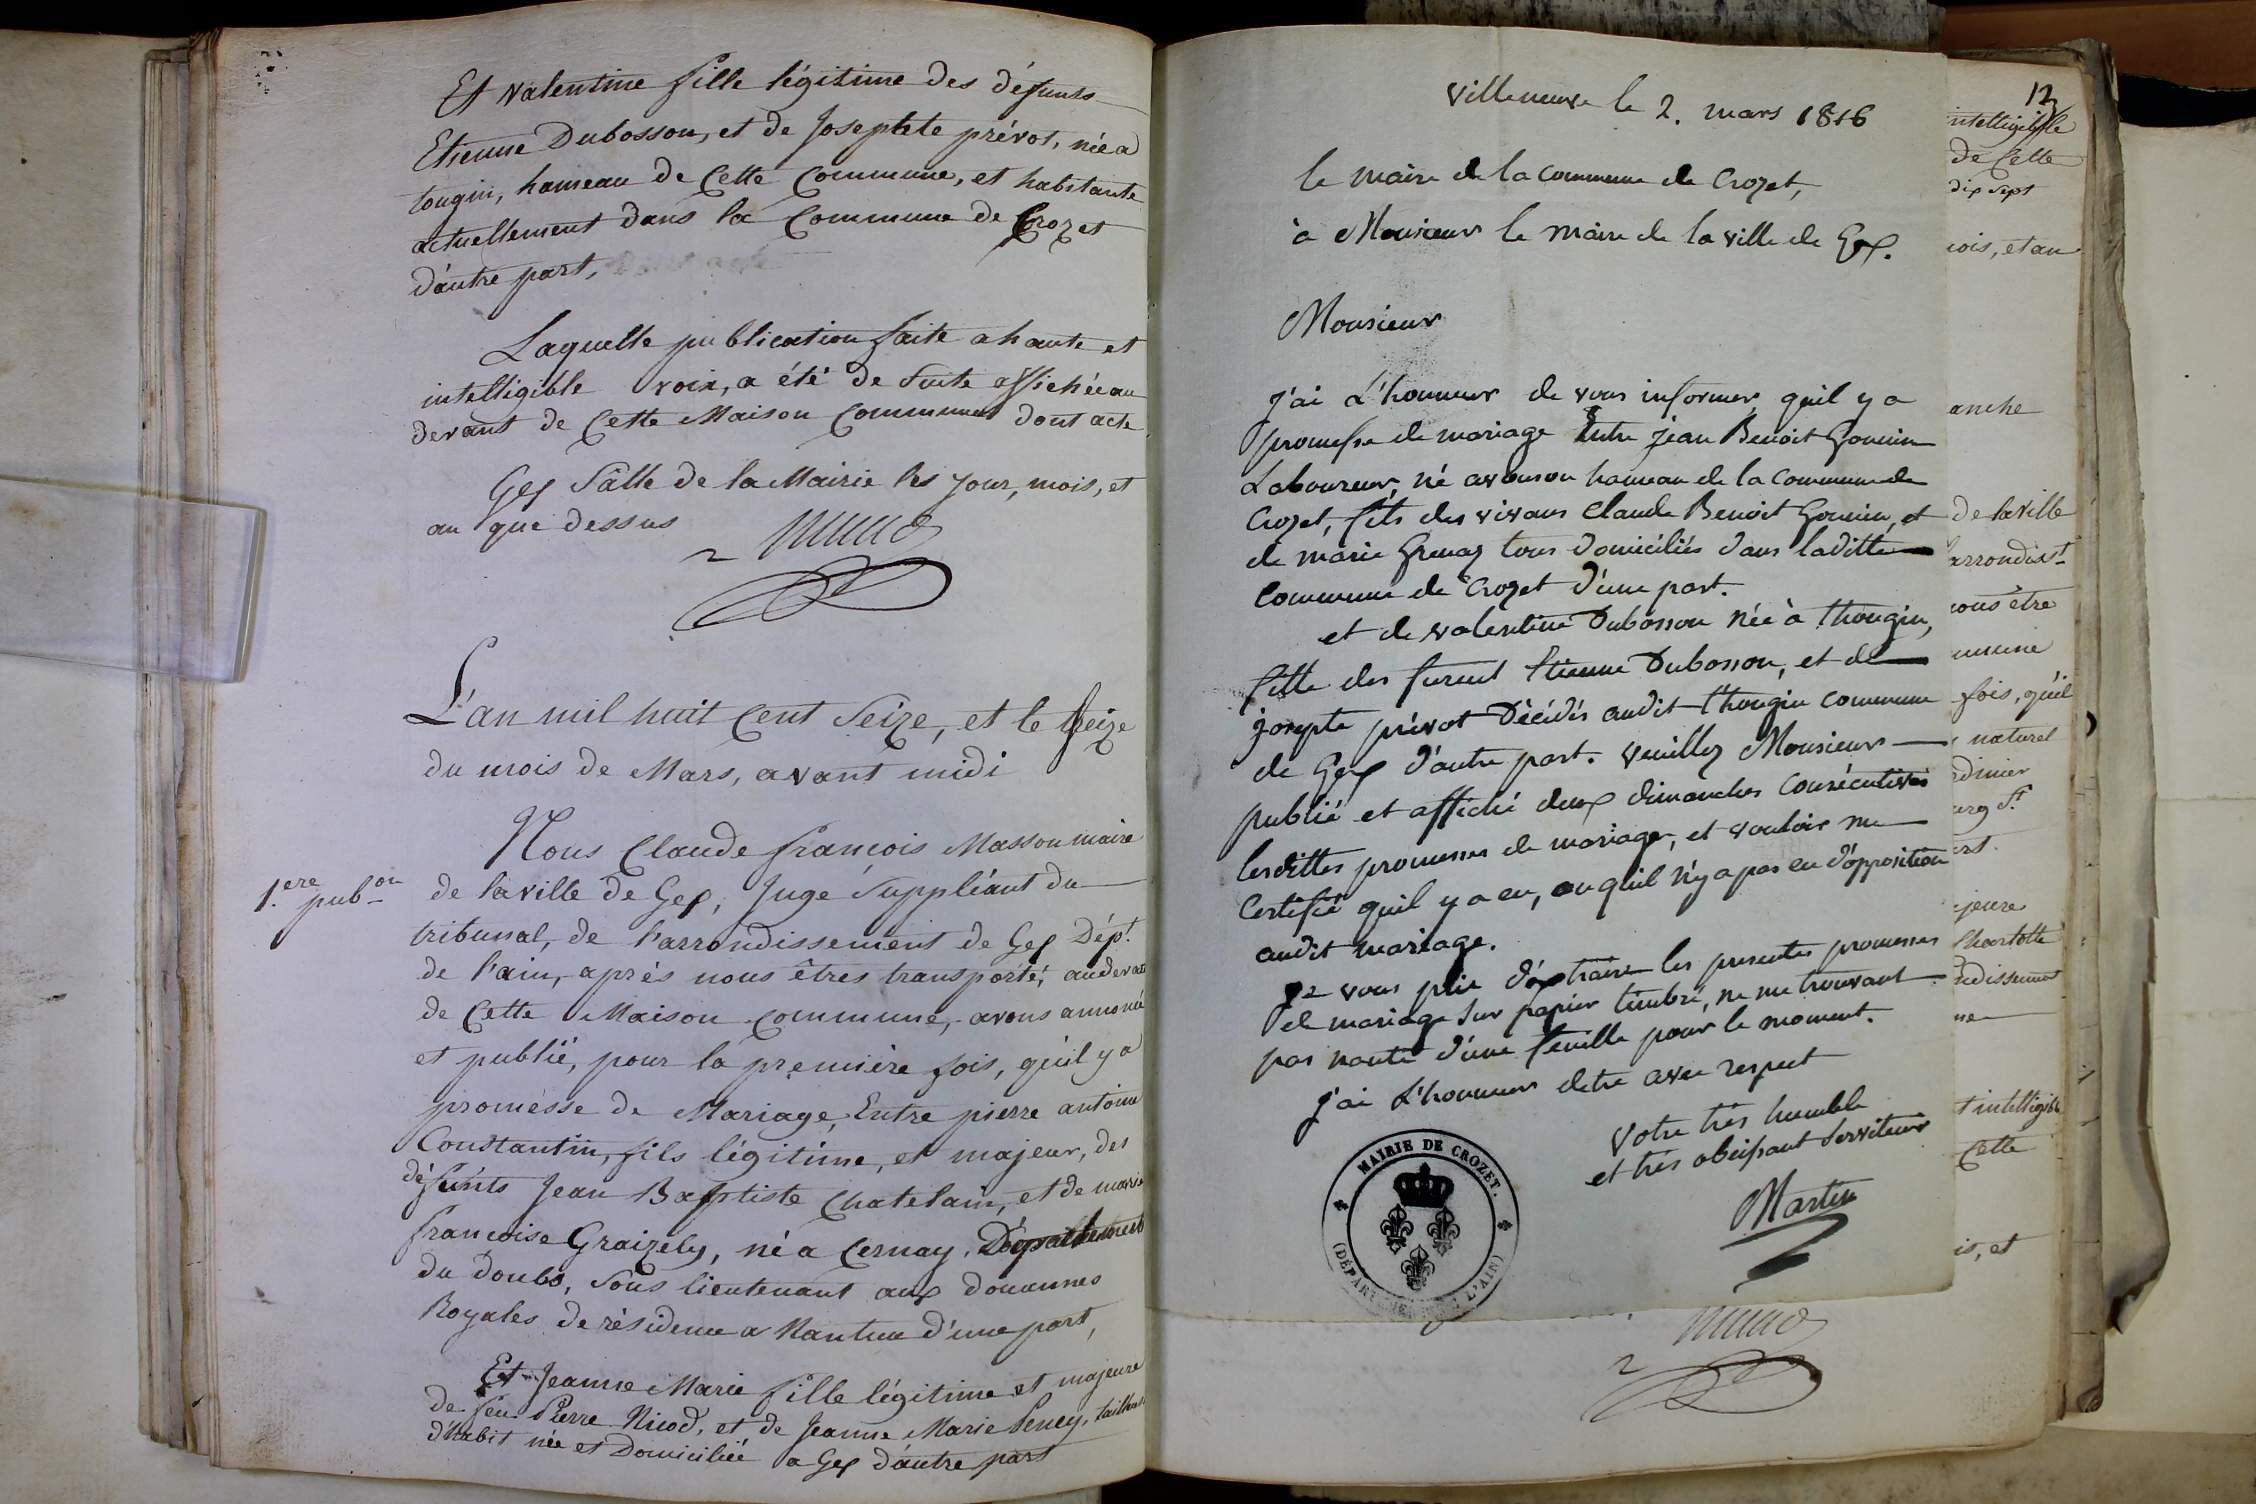 Et Valentine fille légitime des défunts
Etienne Dubosson, et de Josephte prévot, née a
tougin, hameau de Cette Commune, et habitante
actuellement dans la Commune de Crozet
d'autre part,
Laquelle publication faite a haute et
intelligible voix, a été de suite affichée au
devant de Cette Maison Commune dont acte
Gex Salle de la Mairie les jour, mois, et
an que dessus
L'an mil huit Cent Seize, et le Seize
du mois de Mars, avant midi
Nous Claude françois Masson maire
1.ere pub.on
de la ville de Gex, Juge Suppléant du
tribunal, de l'arrondissement de Gex Dép.t
de l'ain, aprés nous êtres transporté, audevant
de Cette Maison Commune, avons annoncé
et publié, pour la première fois, qu'il y a
promésse de Mariage, Entre pierre antoine
Constantin, fils légitime, et majeur, des
défunts Jean Baptiste Chatelain, et de marie
françoise Graizely, né a Cernay, Département
du Doubs, Sous lieutenant aux douannes
Royales de résidence a Nantua d'une part,
Et Jeanne Marie fille légitime et majeure
de feu Pierre Nicod, et de Jeanne Marie Peney, tailleuse
d'habit née et Domiciliée a Gex d'autre part
Villeneuve le 2. mars 1816
le maire de la commune de Crozet,
à Monsieur le maire de la ville de Gex.
Monsieur
j'ai L'honneur de vous informer, quil y a
promesse de mariage Entre jean Benoit Gonin
Laboureur, né avouson hameau de la commune de
Crozet, fils des vivans Claude Benoit Gonin, et
de marie Grenaz tous domiciliés dans laditte
Commune de Crozet d'une part.
et de valentine Dubosson née à thougin,
fille des furent Etienne Dubosson, et de
josepte prévot Décédés audit thougin commune
de Gex d'autre part. veuillez Monsieur
publié et affiché deux dimanches consécutives
lesdittes promesses de mariage, et vouloir me
Certifié quil y a eu, ou quil n'y a pas eu d'opposition
audit mariage.
je vous prie d'extraire les presentes promesses
de mariage sur papier timbré, ne me trouvant
pas nanti d'une feuille pour le moment.
j'ai L'honneur detre avec respect
votre très humble
et très obeissant Serviteur
Martin
MAIRIE DE CROZET.
(DÉPARTEMENT DE L'AIN)
12
intelligible
de Cette
dix sept
mois, et an
anche
de la ville
arrondist
nous être
mmune
fois, qu'il
naturel
dinier
urg St
art.
ajeure
Charlotte
ndissement
ne
t intelligible
Cette
is, et